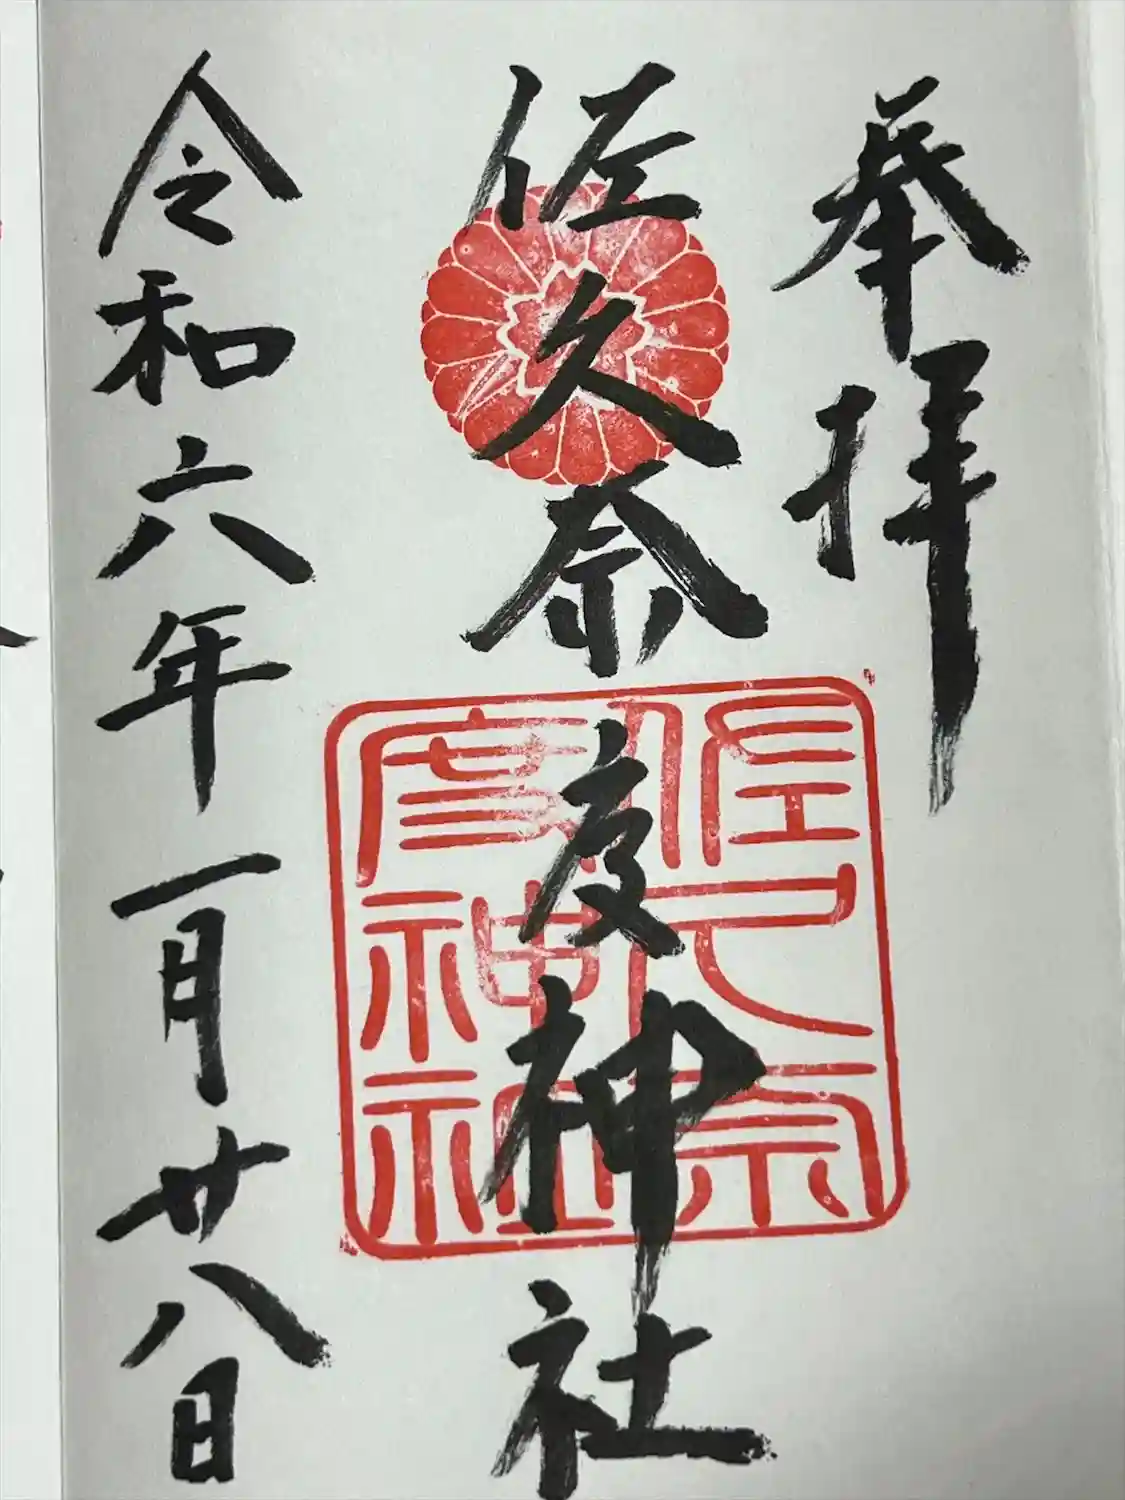 奉拝
佐久奈度神社
佐久奈
度神社
令和六年一月廿八日